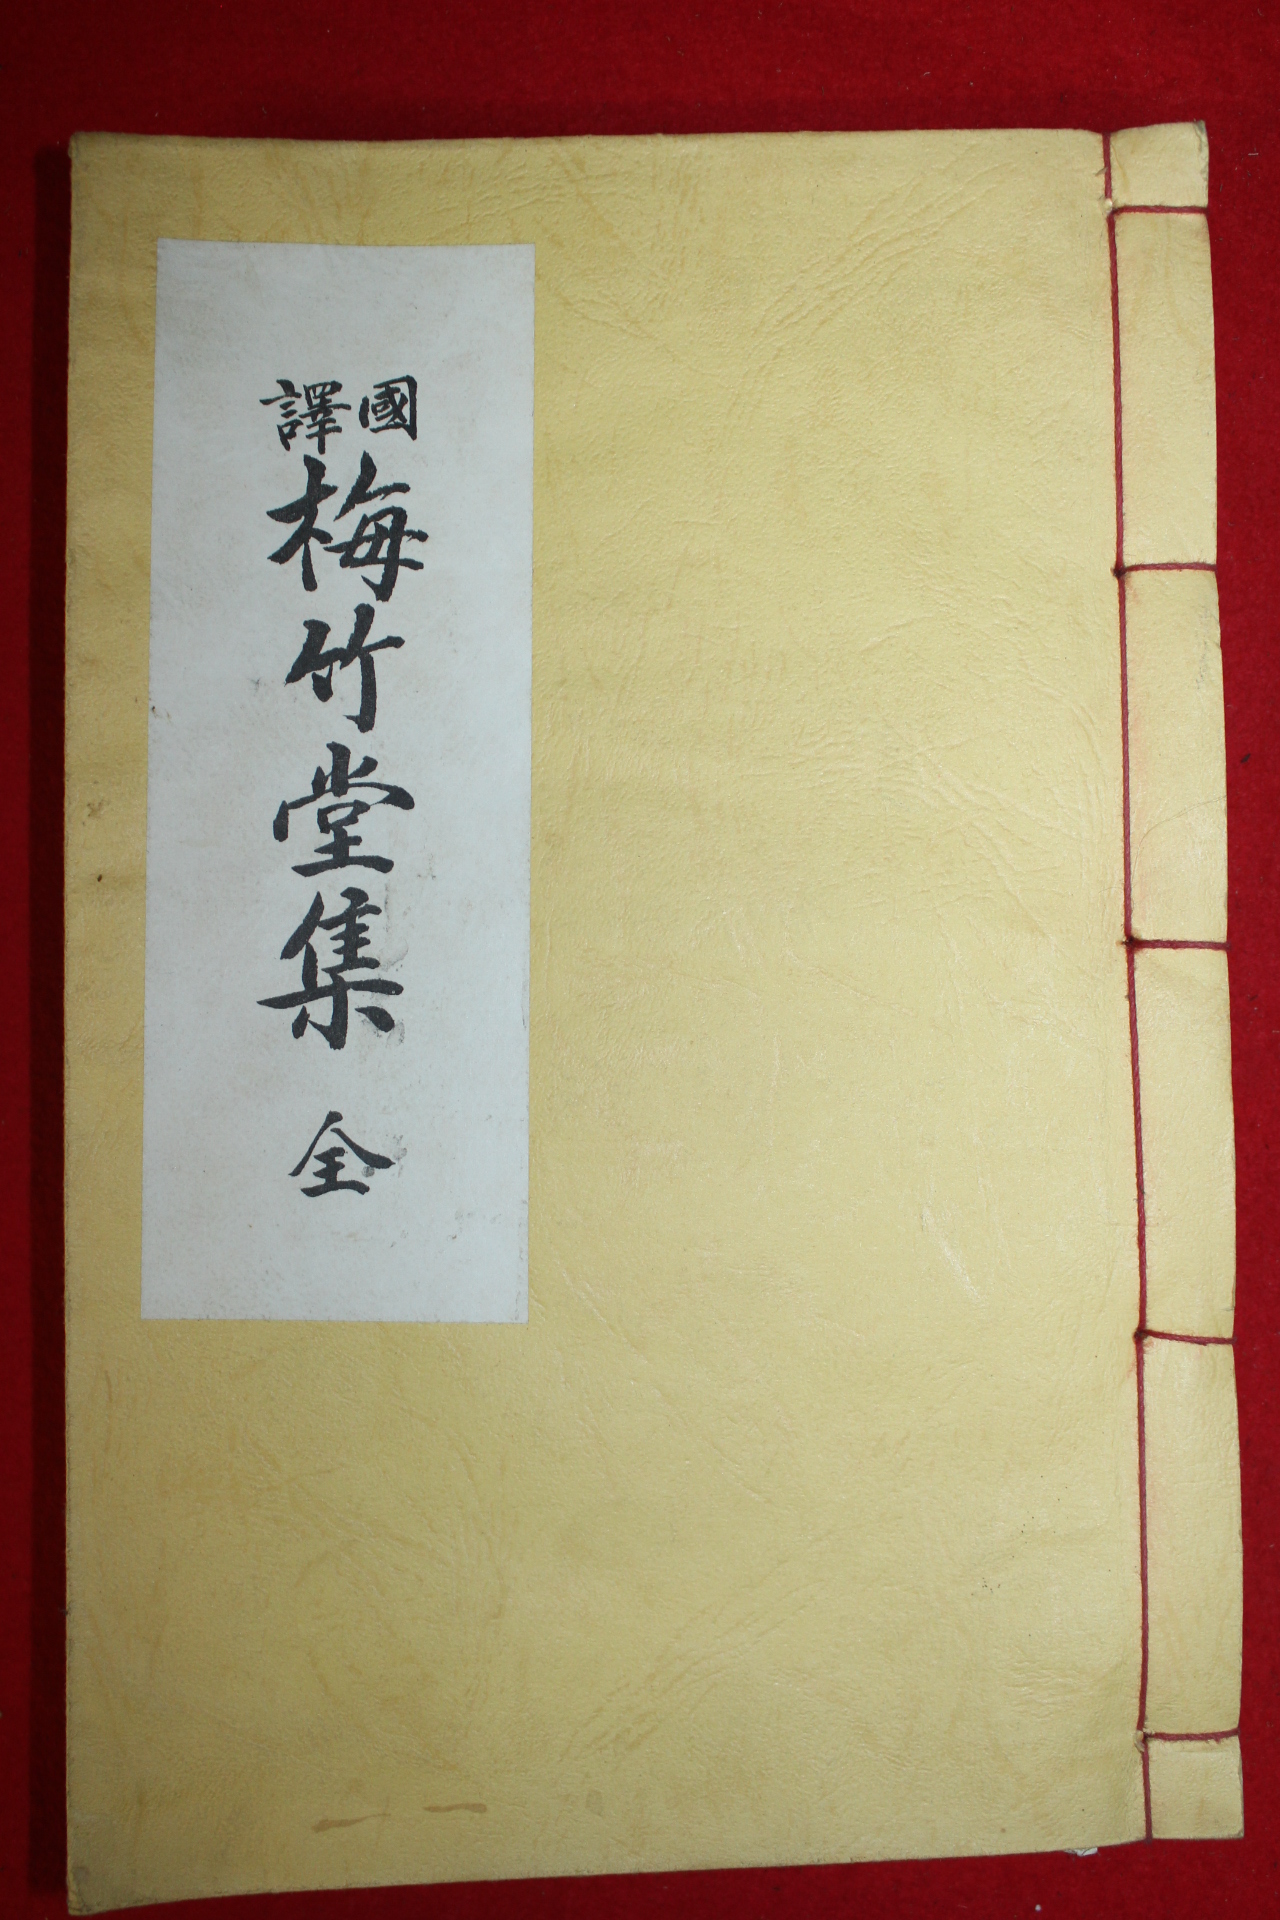 國譯
梅竹堂集 全